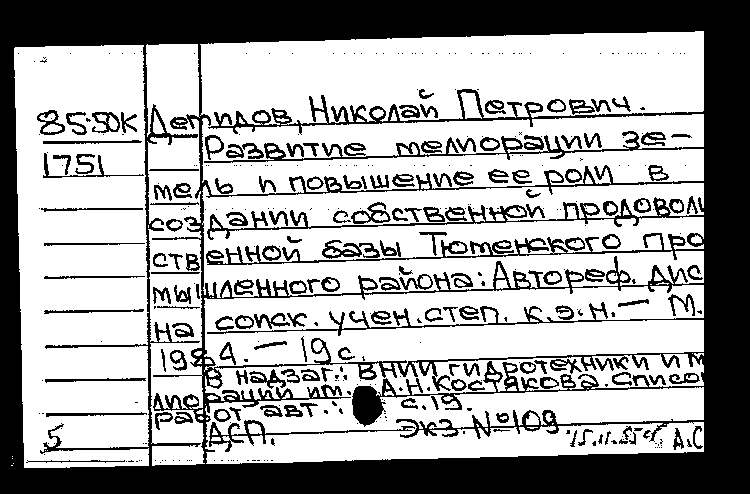 85-50К Демидов, Николай Петрович.
1751 Развитие мелиорации зе-
мель и повышение ее роли в
создании собственной продоволь
ственной базы Тюменского про
мышленного района: Автореф. Дис
на соиск. учен. степ. к.э.н. — М.
1984. — 19 с.
В надзаг.: ВНИИ гидротехники и м
лиорации им. А.Н. Костякова. Списо
работ авт.: с. 19.
5 ДСП. Экз. № 109 А.С